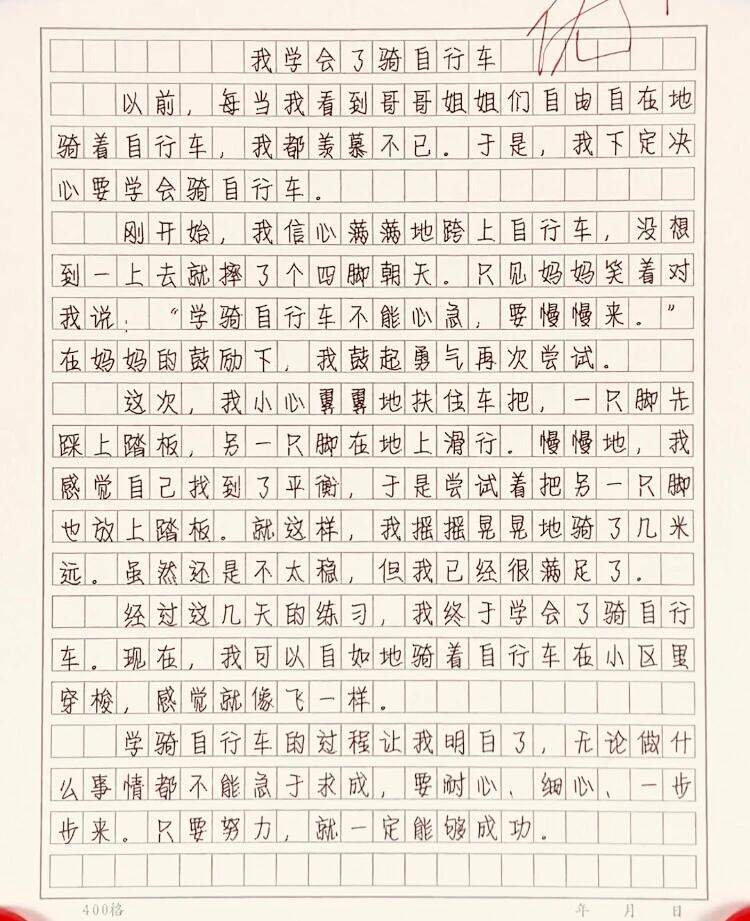 优
我学会了骑自行车
以前，每当我看到哥哥姐姐们自由自在地
骑着自行车，我都羡慕不已。于是，我下定决
心要学会骑自行车。
刚开始，我信心满满地跨上自行车，没想
到一上去就摔了个四脚朝天。只见妈妈笑着对
我说：“学骑自行车不能心急，要慢慢来。”
在妈妈的鼓励下，我鼓起勇气再次尝试。
这次，我小心翼翼地扶住车把，一只脚先
踩上踏板，另一只脚在地上滑行。慢慢地，我
感觉自己找到了平衡，于是尝试着把另一只脚
也放上踏板。就这样，我摇摇晃晃地骑了几米
远。虽然还是不太稳，但我已经很满足了。
经过这几天的练习，我终于学会了骑自行
车。现在，我可以自如地骑着自行车在小区里
穿梭，感觉就像飞一样。
学骑自行车的过程让我明白了，无论做什
么事情都不能急于求成，要耐心、细心、一步
步来。只要努力，就一定能够成功。
400格 年 月 日